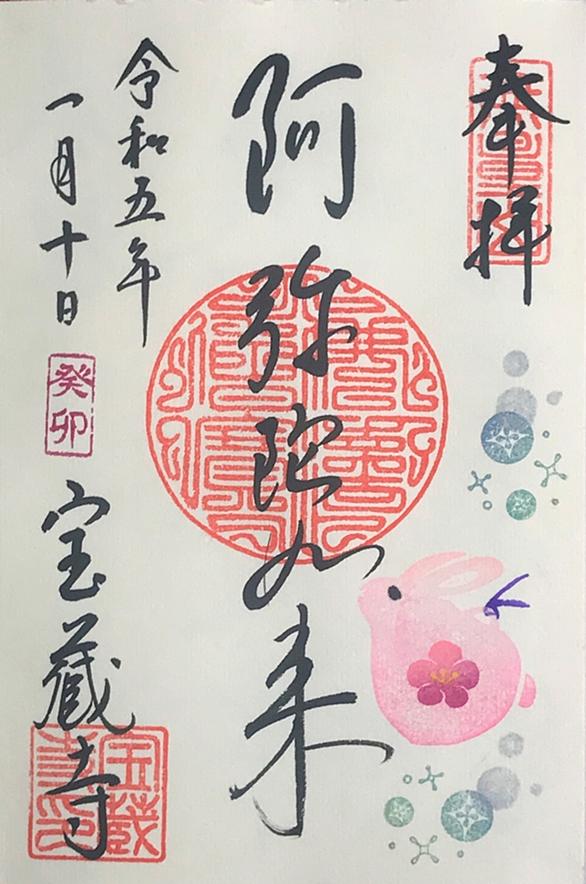 奉拝
阿弥陀如来
令和五年
一月十日
癸卯
宝蔵寺